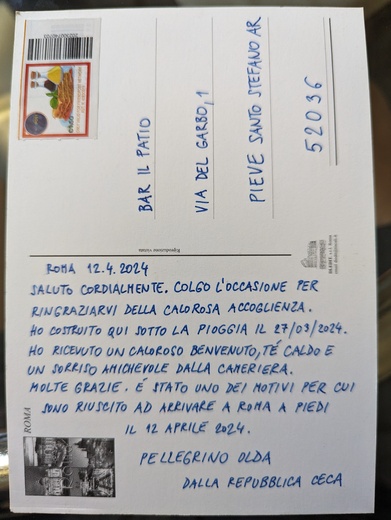 BAR IL PATIO
VIA DEL GARBO, 1
PIEVE SANTO STEFANO AR
52036
Riproduzione vietata
ROMA 12.4.2024
SALUTO CORDIALMENTE. COLGO L'OCCASIONE PER
RINGRAZIARVI DELLA CALOROSA ACCOGLIENZA.
HO COSTRUITO QUI SOTTO LA PIOGGIA IL 27/03/2024.
HO RICEVUTO UN CALOROSO BENVENUTO, TÉ CALDO E
UN SORISO AMICHEVOLE DALLA CAMERIERA.
MOLTE GRAZIE. É STATO UNO DEI MOTIVI PER CUI
SONO RIUSCITO AD ARRIVARE A ROMA A PIEDI
IL 12 APRILE 2024.
PELLEGRINO OLDA
DALLA REPUBBLICA CECA
ROMA